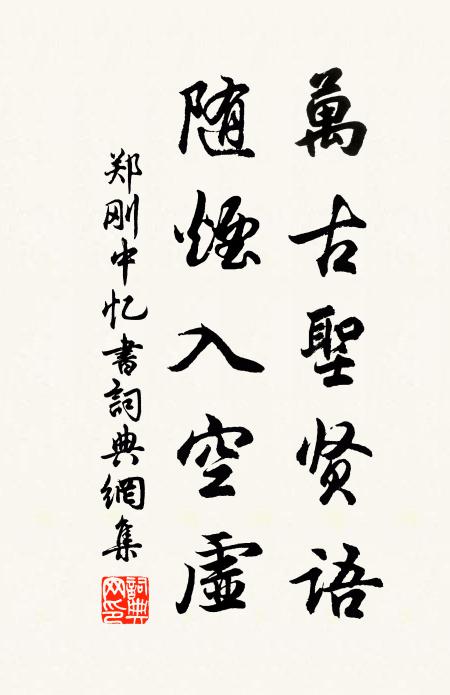 萬古聖贤語
随煙入空虛
郑刚中忆書詞典網集
詞典網印